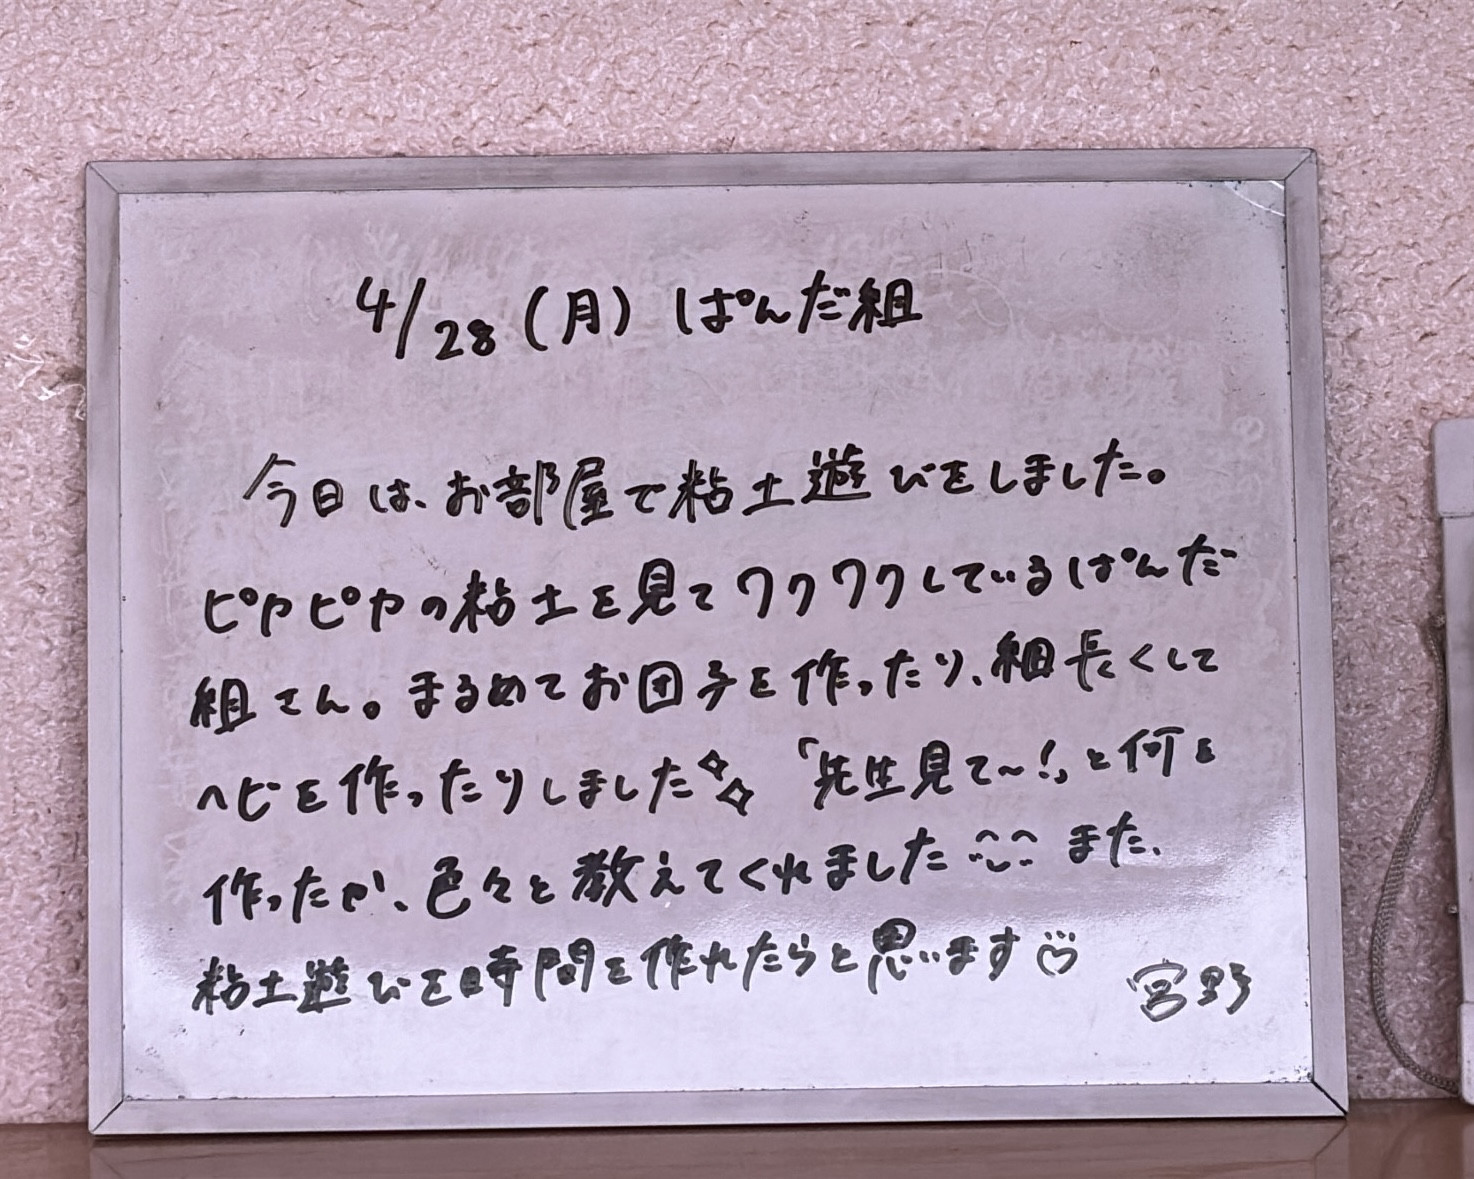 4/28(月) ぱんだ組
今日は、お部屋で粘土遊びをしました。
ピカピカの粘土を見てワクワクしているぱんだ
組さん。まるめてお団子を作ったり、細長くして
ヘビを作ったりしました 「先生見て〜!」と何を
作ったか、色々と教えてくれました また、
粘土遊びを時間を作れたらと思います
宮野